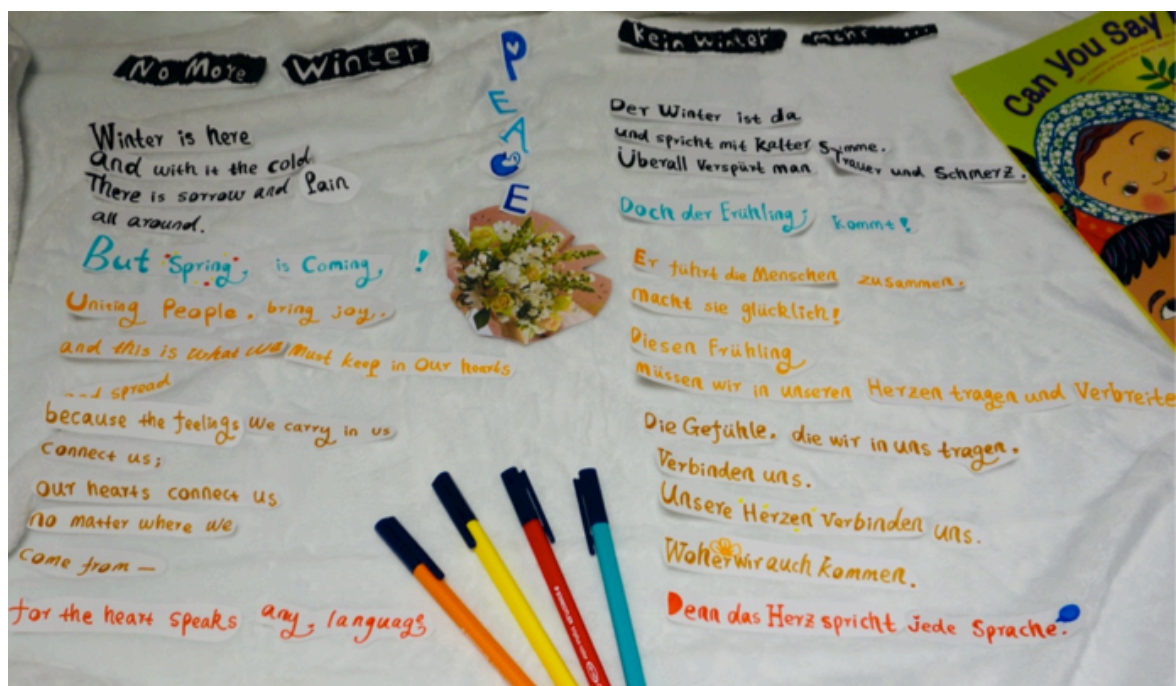 No More Winter
Winter is here
and with it the cold
There is sorrow and Pain
all around.
But "Spring", is Coming, !
Uniting People. bring joy.
and this is what we Must keep in Our hearts
and spread
because the feelings We carry in us
Connect us;
our hearts connect us
no matter where we
come from —
for the heart speaks any, language
PEACE
Kein Winter mehr ...
Der Winter ist da
und spricht mit kalter Symme.
Überall Verspürt man Trauer und Schmerz.
Doch der Erühling; kommt!
Er führt die Menschen zusammen.
macht sie glücklich!
Diesen Frühling
müssen wir in unseren Herzen tragen und Verbreite
Die Gefühle, die wir in uns tragen.
Verbinden uns.
Unsere "Herzen" Verbinden uns.
Woher wir auch kommen.
Denn das Herz spricht jede Sprache.
Can You Say